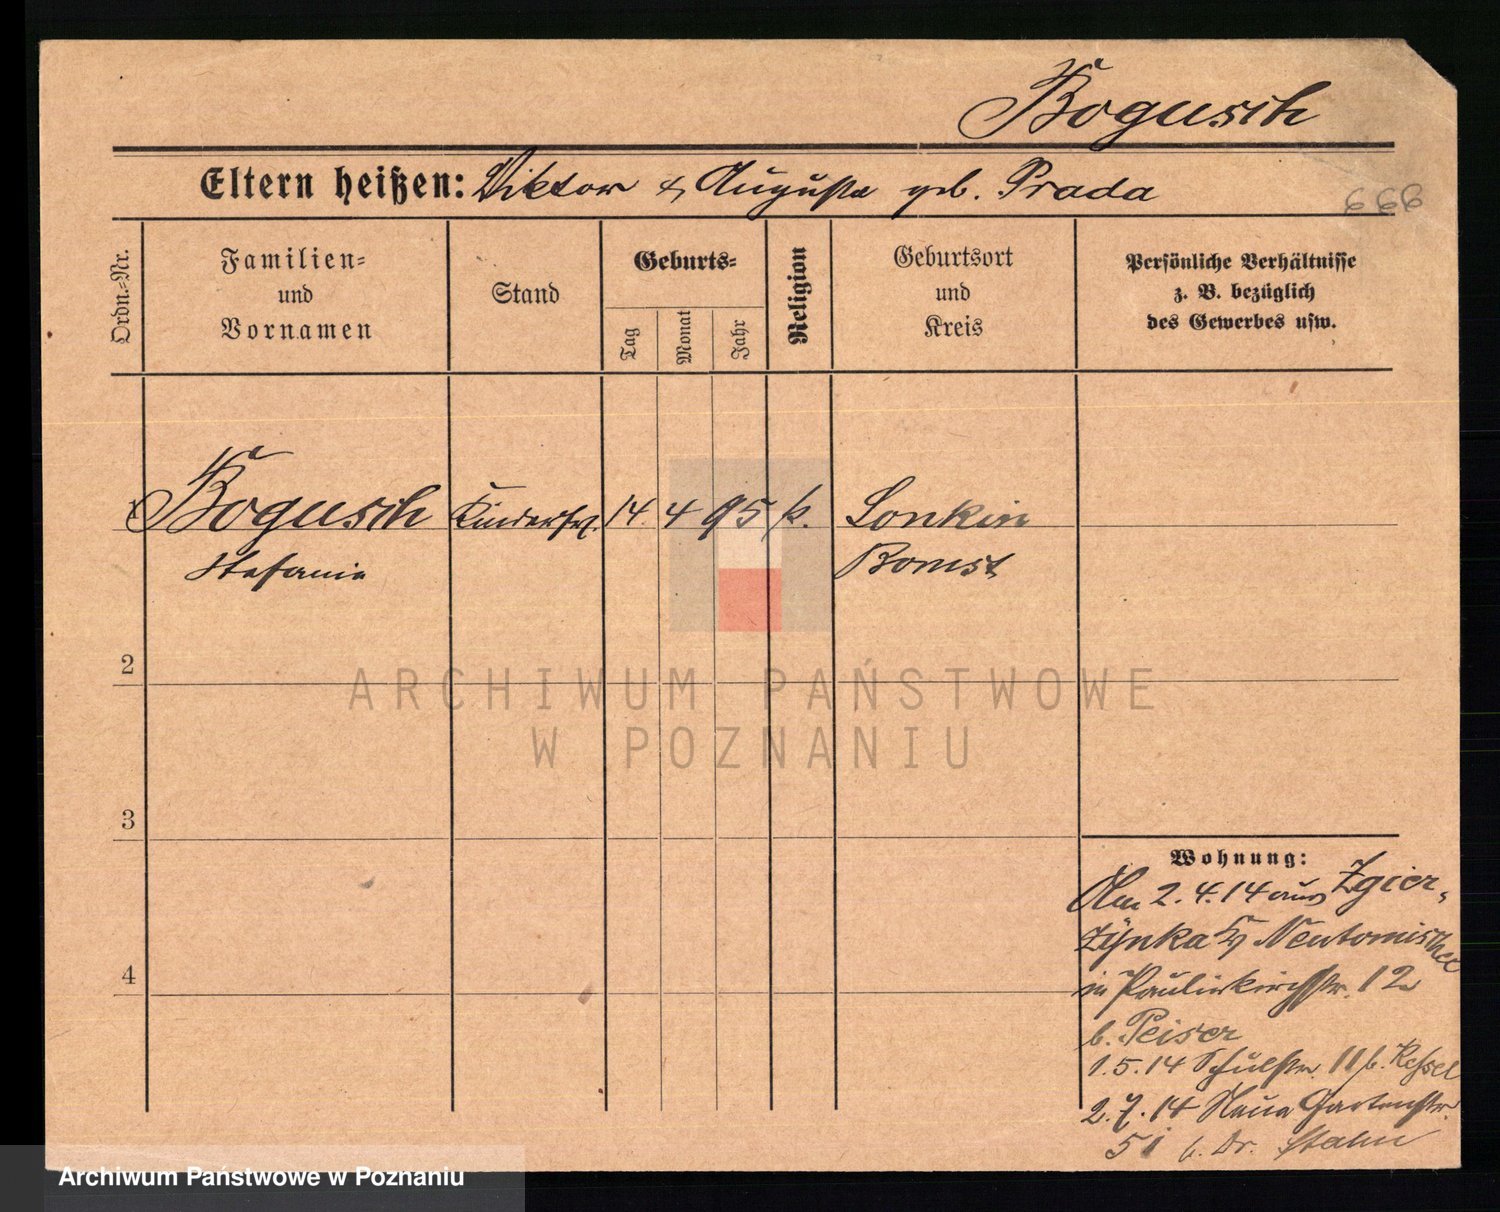 Bogusch
Eltern heißen: Viktor & Auguste geb. Prada
666
Ordn.-Nr.
Familien-
und
Vornamen
Stand
Geburts-
Tag
Monat
Jahr
Religion
Geburtsort
und
Kreis
Persönliche Verhältnisse
z. B. bezüglich
des Gewerbes usw.
Bogusch Kinderfrl. 14. 4 95 k. Lonkin
Stefanie Bomst
2
ARCHIWUM PAŃSTWOWE
W POZNANIU
3
Wohnung:
Am 2.4.14 aus Zgier-
zynka Kr Neutomischel
4
in Paulikirchstr. 12
b. Peiser
1.5.14 Schulstr. 11 b. Kessel
2.7.14 Neue Gartenstr.
51 b. Dr. Stahn
Archiwum Państwowe w Poznaniu